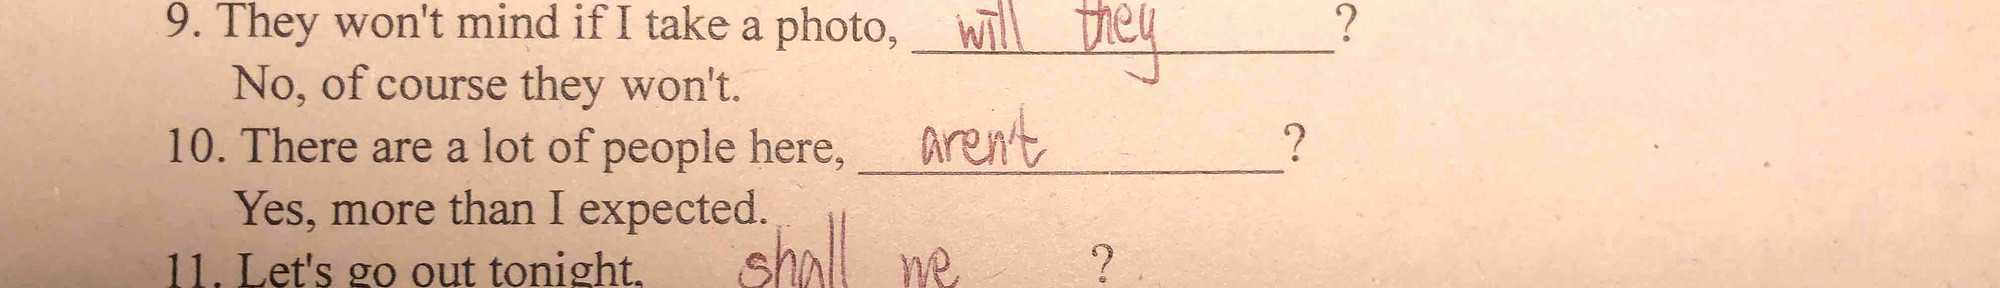 9. They won't mind if I take a photo, will they ?
No, of course they won't.
10. There are a lot of people here, aren't ?
Yes, more than I expected.
11. Let's go out tonight, shall we ?